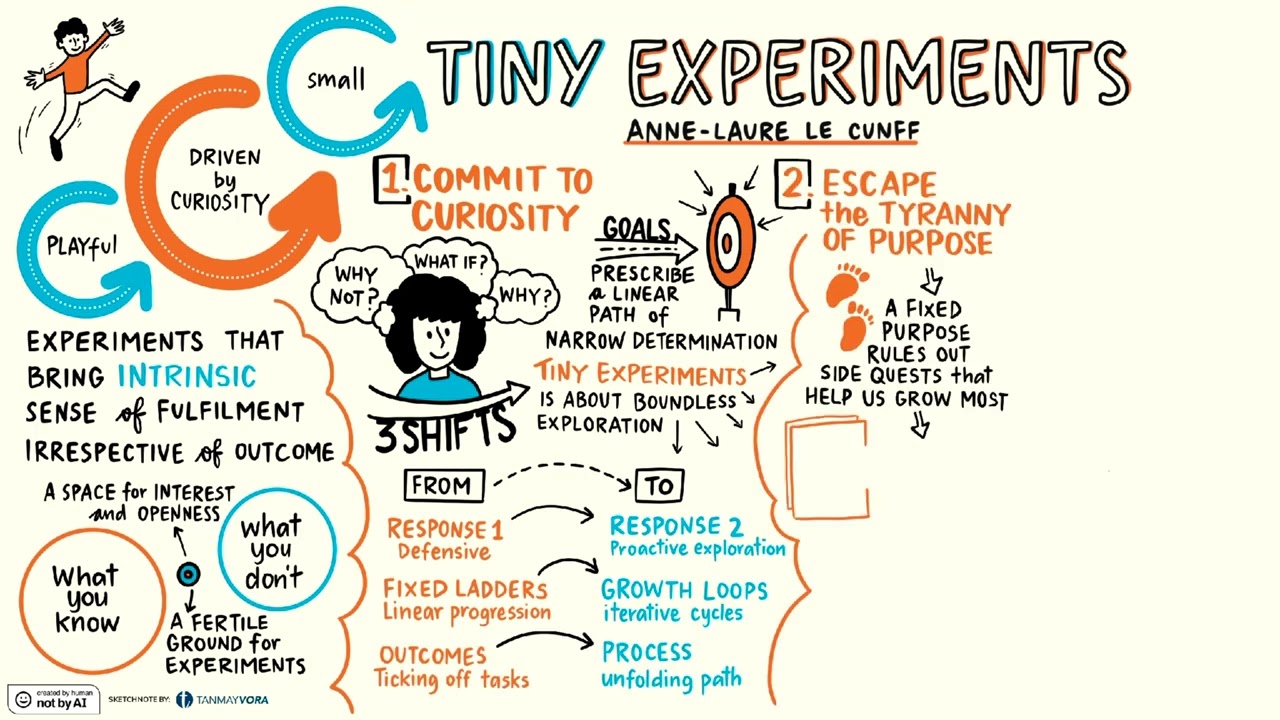 TINY EXPERIMENTS
ANNE-LAURE LE CUNFF
small
DRIVEN
by
CURIOSITY
PLAYful
EXPERIMENTS THAT
BRING INTRINSIC
SENSE of FULFILMENT
IRRESPECTIVE of OUTCOME
A SPACE for INTEREST
and OPENNESS
what
you
don't
What
you
know
A FERTILE
GROUND for
EXPERIMENTS
1. COMMIT TO
CURIOSITY
WHY
NOT?
WHAT IF?
WHY?
GOALS
PRESCRIBE
a LINEAR
PATH of
NARROW DETERMINATION
TINY EXPERIMENTS
IS ABOUT BOUNDLESS
EXPLORATION
3 SHIFTS
FROM
TO
RESPONSE 1
Defensive
RESPONSE 2
Proactive exploration
FIXED LADDERS
Linear progression
GROWTH LOOPS
iterative cycles
OUTCOMES
Ticking off tasks
PROCESS
unfolding path
2. ESCAPE
the TYRANNY
OF PURPOSE
A FIXED
PURPOSE
RULES OUT
SIDE QUESTS that
HELP US GROW MOST
created by human
not by AI
SKETCHNOTE BY:
TANMAYVORA